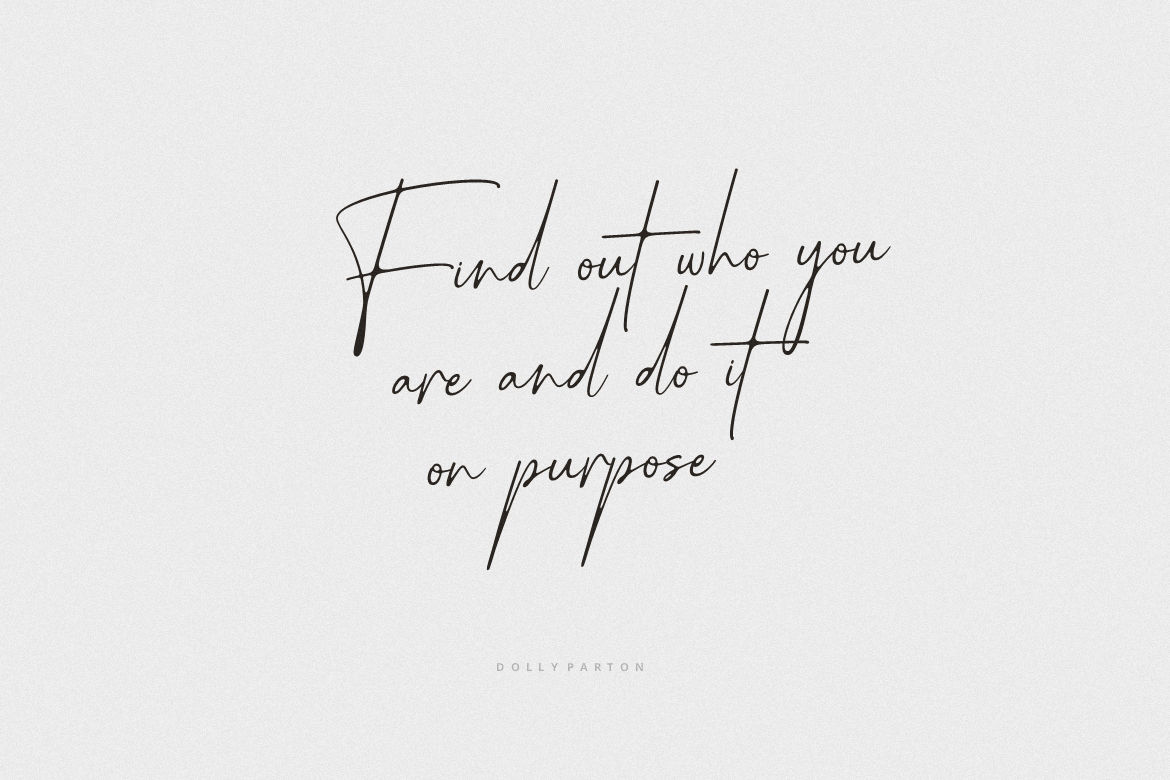 Find out who you
are and do it
on purpose
DOLLY PARTON